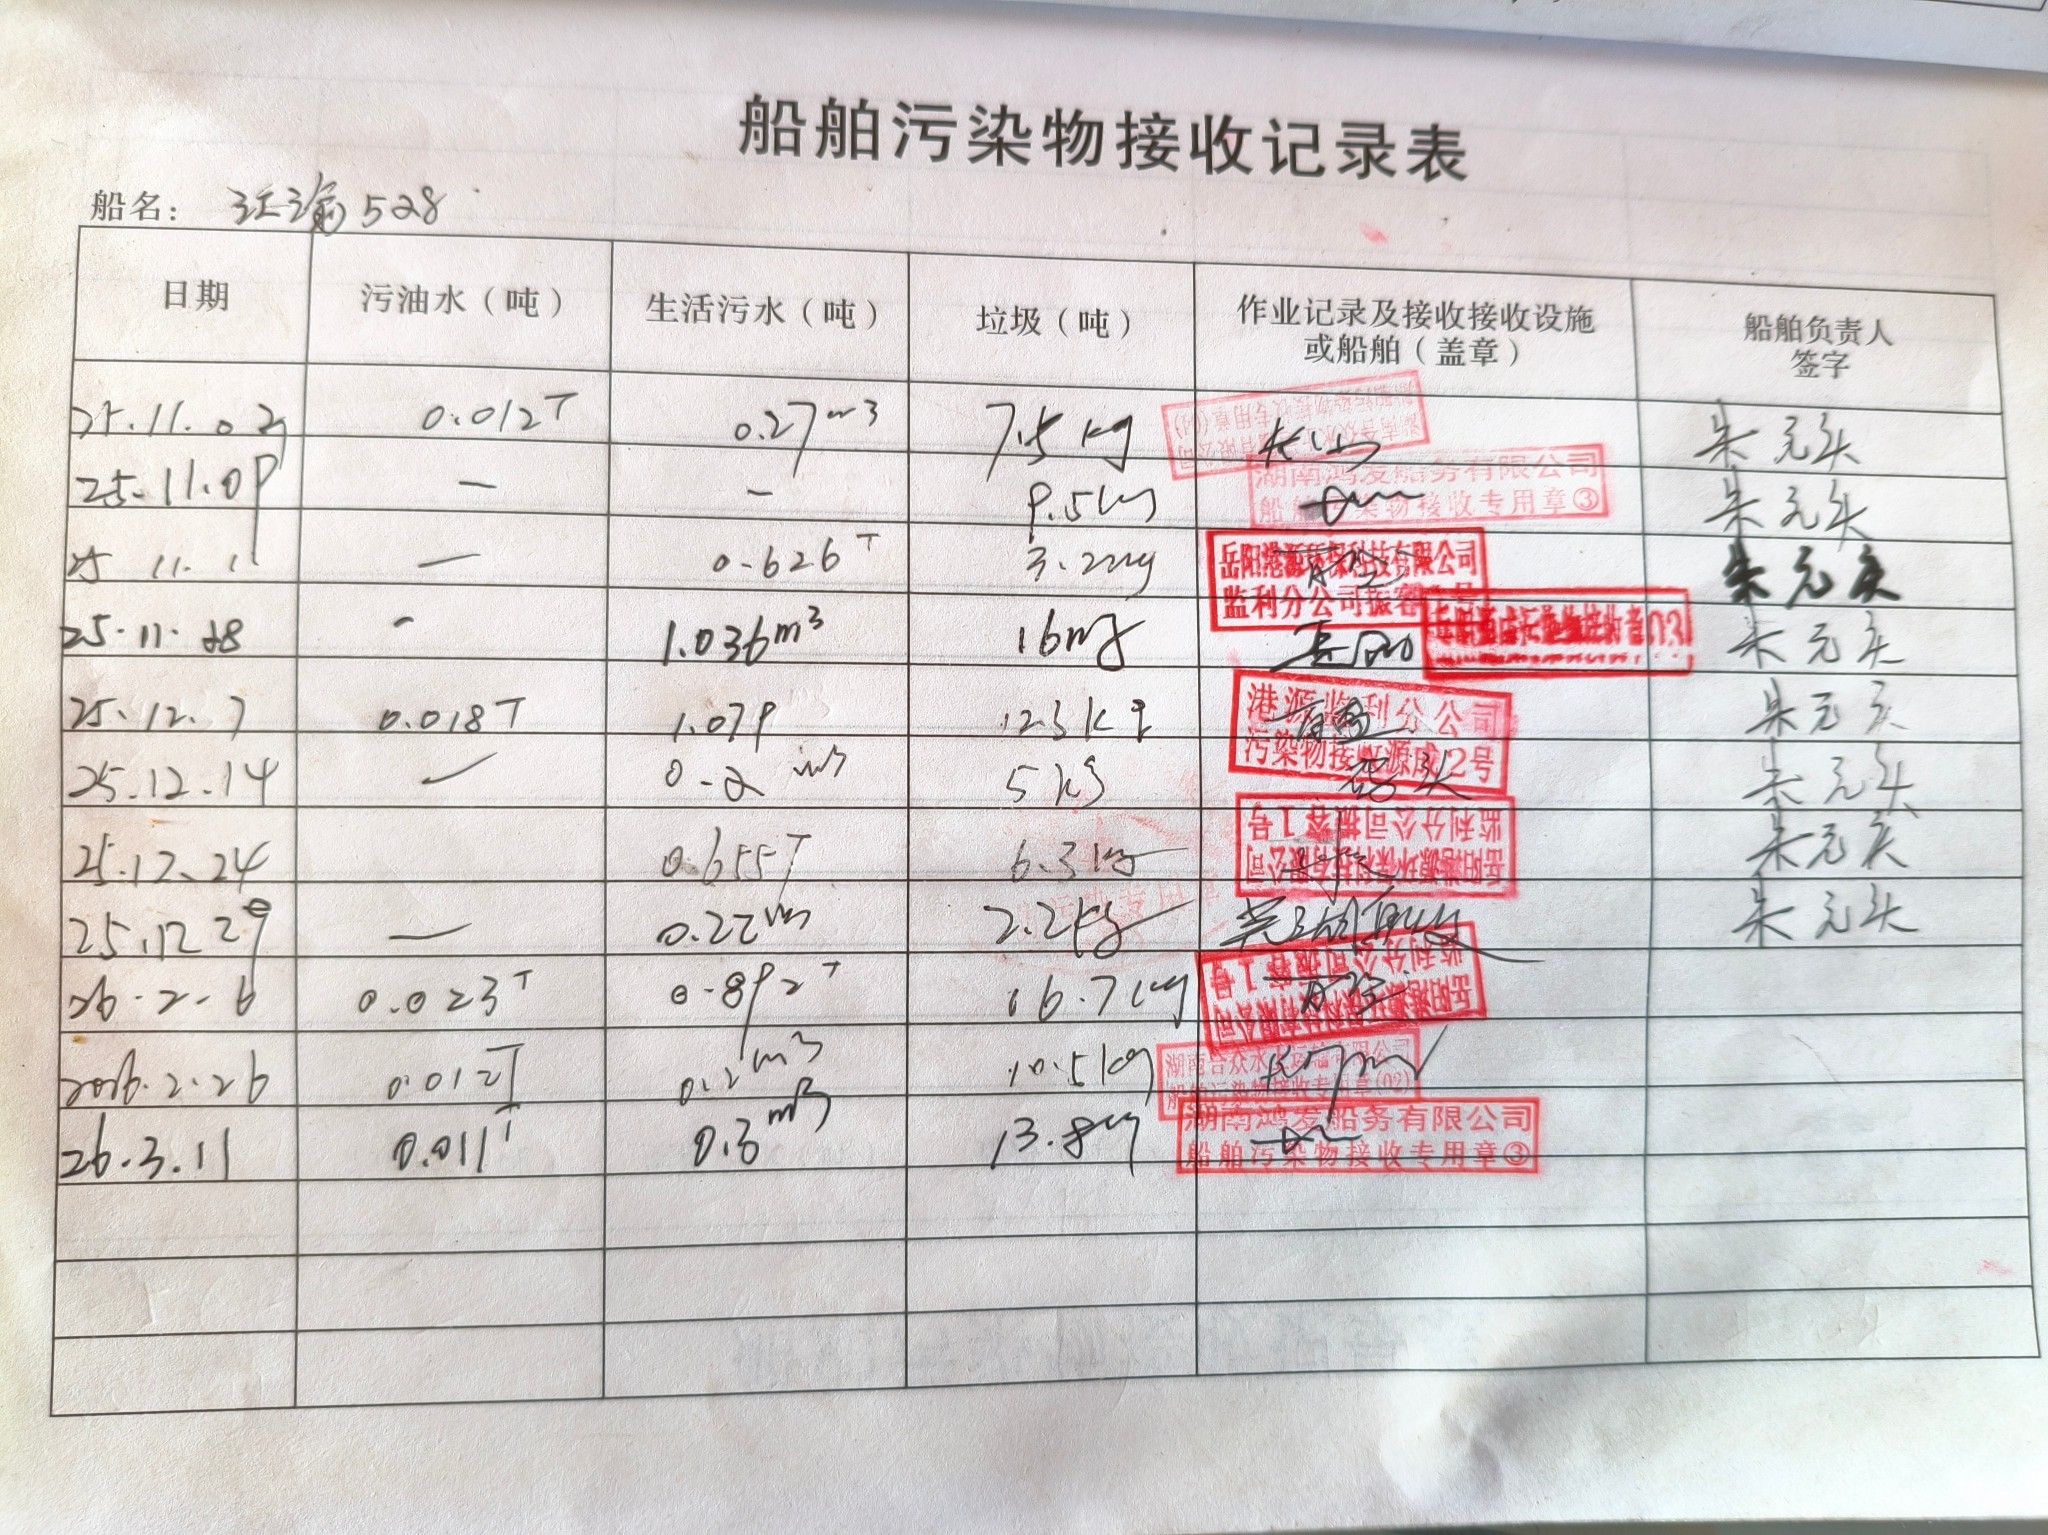 船舶污染物接收记录表
船名： 江渝528
日期 污油水（吨） 生活污水（吨） 垃圾（吨） 作业记录及接收接收设施或船舶（盖章） 船舶负责人签字
25.11.02 0.012T 0.27m3 7.5kg 湖南合众水 朱元头
25.11.09 — — 9.5kg 湖南鸿发船务有限公司 船舶污染物接收专用章③ 朱元头
25 11.11 — 0.626T 3.2kg 岳阳港源环保科技有限公司 监利分公司振容 号 朱元头
25.11.28 - 1.036m3 16kg 朱元头
25.12.7 0.018T 1.079 12.3kg 港源监利分公司 污染物接收源成2号 朱元头
25.12.14 — 0.2m3 5kg 朱元头
25.12.24 0.655T 6.3kg 岳阳港源环保科技有限公司 监利分公司振容1号 朱元头
25.12 29 — 0.22m3 2.2kg 朱元头
26.2.6 0.023T 0.892T 16.7kg 岳阳港源环保科技有限公司 监利分公司振容1号
2026.2.26 0.012T 0.2m3 10.5kg 湖南合众水 运输有限公司 船舶污染物接收专用章(02)
26.3.11 0.011T 0.3m3 13.8kg 湖南鸿发船务有限公司 船舶污染物接收专用章③